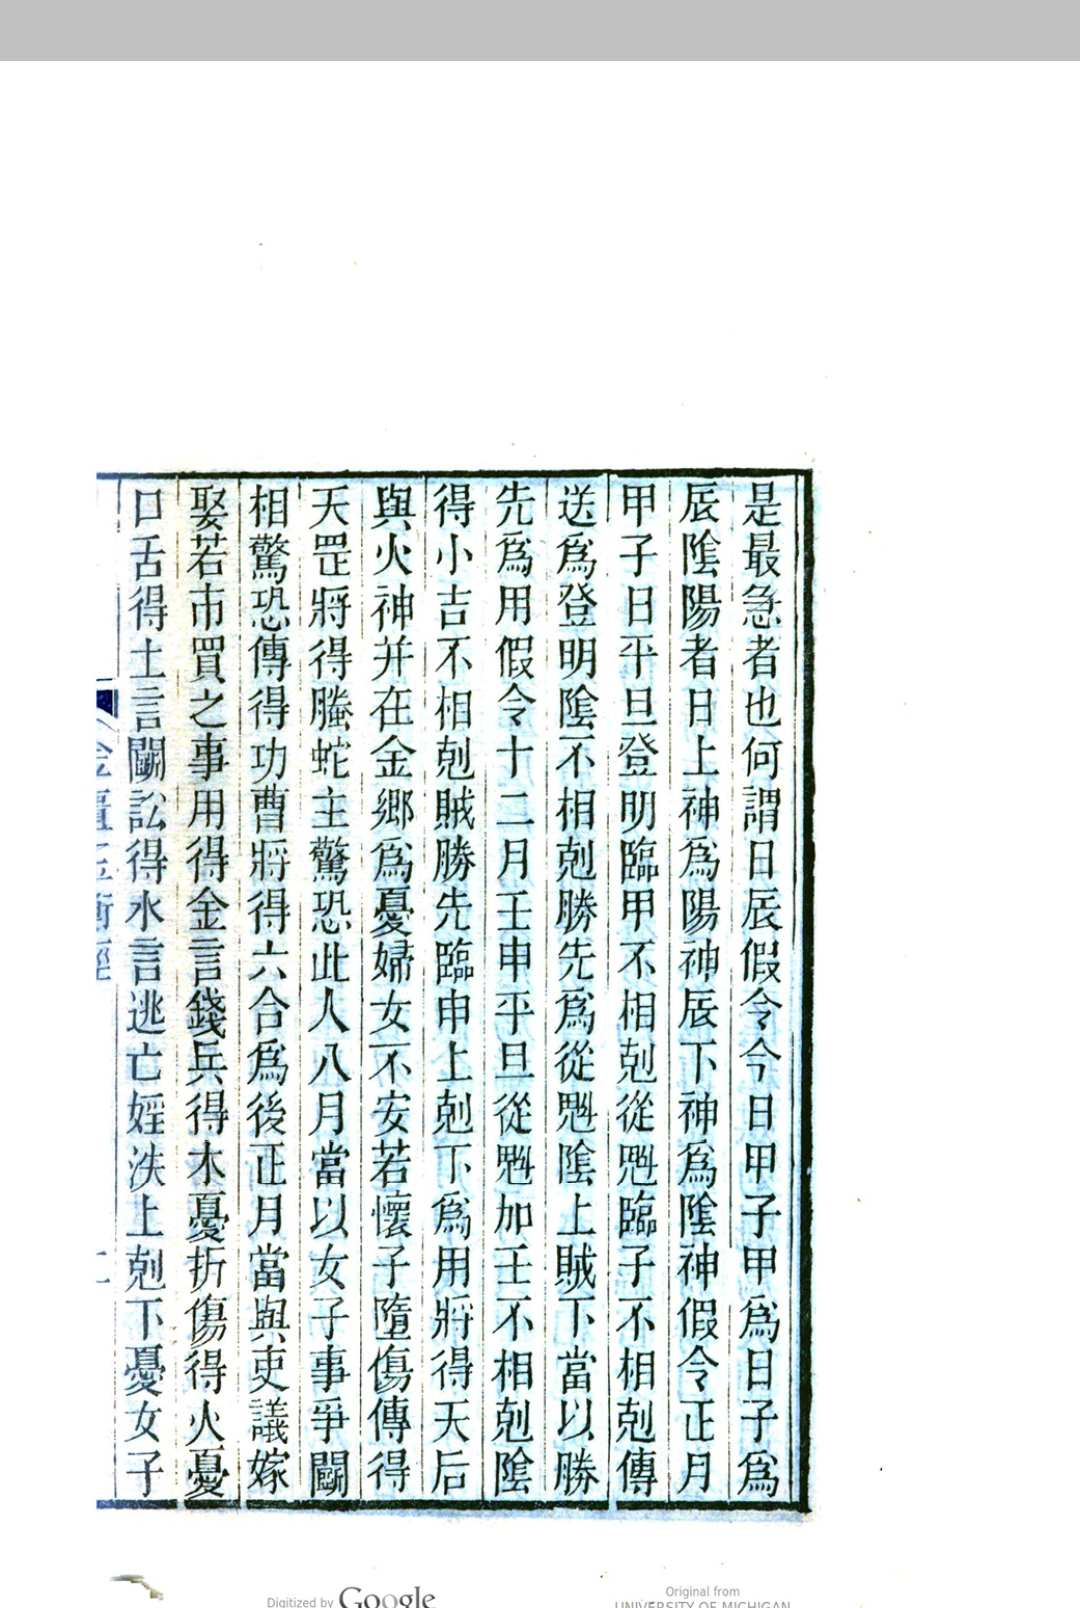 是最急者也何謂日辰假令今日甲子甲爲日子爲
辰陰陽者日上神爲陽神辰下神爲陰神假令正月
甲子日平旦登明臨甲不相剋從魁臨子不相剋傳
送爲登明陰不相剋勝先爲從魁陰上賊下當以勝
先爲用假令十二月壬申平旦從魁加壬不相剋陰
得小吉不相剋賊勝先臨申上剋下爲用將得天后
與火神并在金鄉爲憂婦女不安若懷子墮傷傳得
天罡將得螣蛇主驚恐此人八月當以女子事爭鬭
相驚恐傳得功曹將得六合爲後正月當與吏議嫁
娶若市買之事用得金言錢兵得木憂折傷得火憂
口舌得土言鬭訟得水言逃亡婬泆上剋下憂女子
金匱玉衡經
二
Digitized by Google
Original from
UNIVERSITY OF MICHIGAN